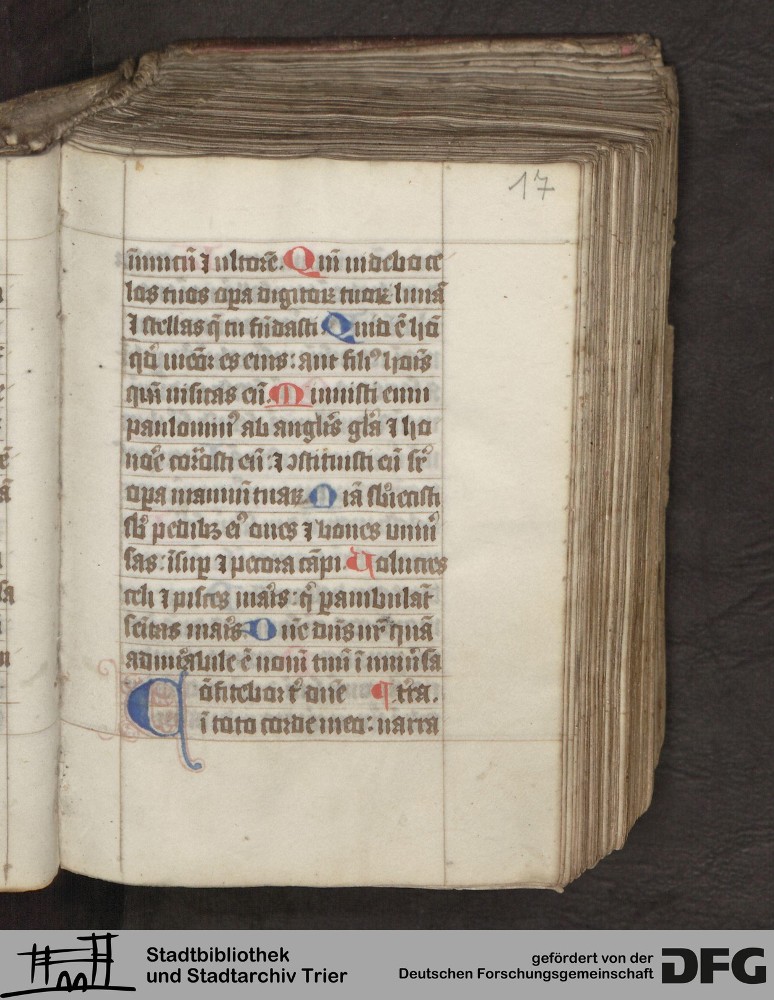 17
īimicū ⁊ ultorē. Qm̄ uidebo ce
los tuos oꝑa digitoꝝ tuoꝝ lunā
⁊ stellas q̄ tu fūdasti. Quid ē hō
qd̕ meōr es eius: aut filiꝰ hoīs
qm̄ uisitas eū. Minuisti eum
paulominꝰ ab anglīs gl̕a ⁊ ho
nō͛e coronasti eū: ⁊ ꝯstituisti eū sr͛
oꝑa manuū tuaꝝ. Oīa sb̕iecisti
sb̕ pedibꝫ eiꝰ oues ⁊ boues uniū͛
sas: īsuꝑ ⁊ pecora cāpi. Uolucres
celi ⁊ pisces mar͛s: q̄ ꝑambulāt
sēitas mar͛s. Dn̄e dn̄s nr̄ quā
admirabile ē nom̄ tuū ī uniū͛sa
Cōfitebor t͛ dn̄e ¶ tr̄ra.
ī toto corde meo: narra
Stadtbibliothek
und Stadtarchiv Trier
gefördert von der
Deutschen Forschungsgemeinschaft
DFG